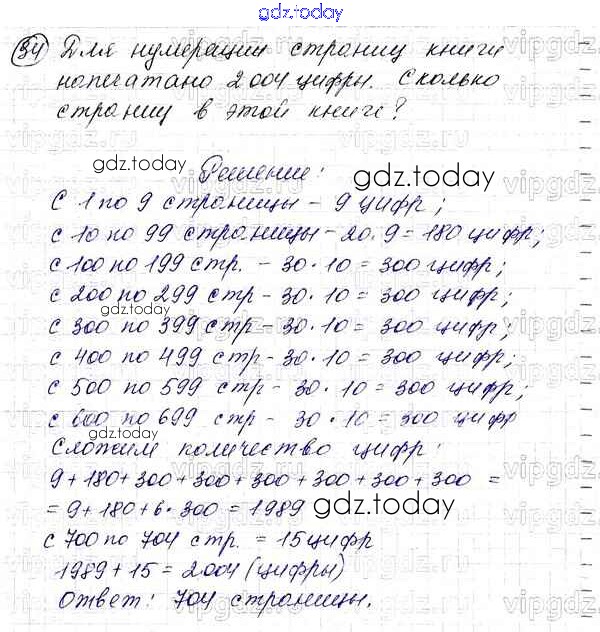 gdz.today
34 Для нумерации страниц книги
напечатано 2004 цифры. Сколько
страниц в этой книге?
gdz.today
gdz.today
Решение:
С 1 по 9 страницы - 9 цифр;
с 10 по 99 страницы - 20·9=180 цифр;
с 100 по 199 стр. - 30·10=300 цифр;
с 200 по 299 стр - 30·10=300 цифр;
gdz.today
с 300 по 399 стр - 30·10=300 цифр;
с 400 по 499 стр - 30·10=300 цифр;
с 500 по 599 стр - 30·10=300 цифр;
с 600 по 699 стр - 30·10=300 цифр
gdz.today
Сложим количество цифр:
9+180+300+300+300+300+300+300=
=9+180+6·300=1989
gdz.today
с 700 по 704 стр. = 15 цифр
1989+15=2004 (цифры)
Ответ: 704 страницы.